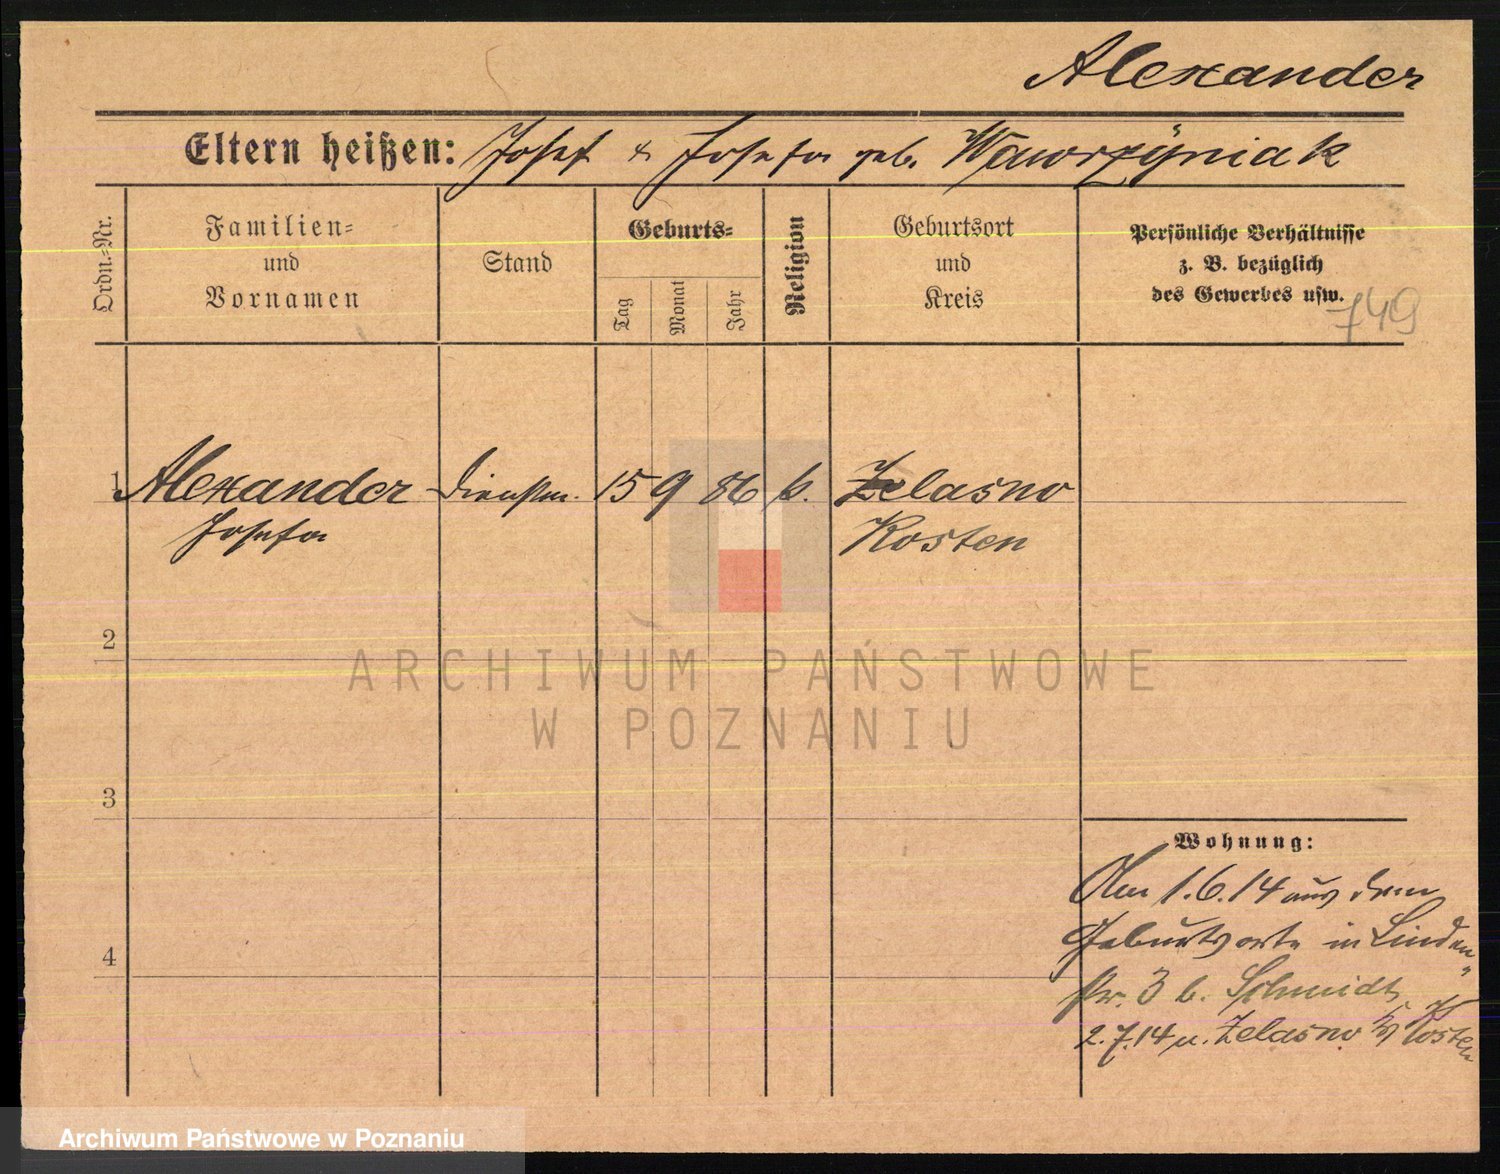 Alexander
Eltern heißen: Josef & Josefa geb. Wawrzÿniak
Ordn.-Nr.
Familien-
und
Vornamen
Stand
Geburts-
Tag
Monat
Jahr
Religion
Geburtsort
und
Kreis
Persönliche Verhältnisse
z. B. bezüglich
des Gewerbes usw.
749
1 Alexander Dienstm. 15 9 86 k. Zelasno
Josefa Kosten
2
ARCHIWUM PAŃSTWOWE
W POZNANIU
3
Wohnung:
Am 1.6.14 aus dem
Geburtsorte in Linden
4
str. 3 b. Schmidt
2.7.14 n. Zelasno Kr Kosten
Archiwum Państwowe w Poznaniu